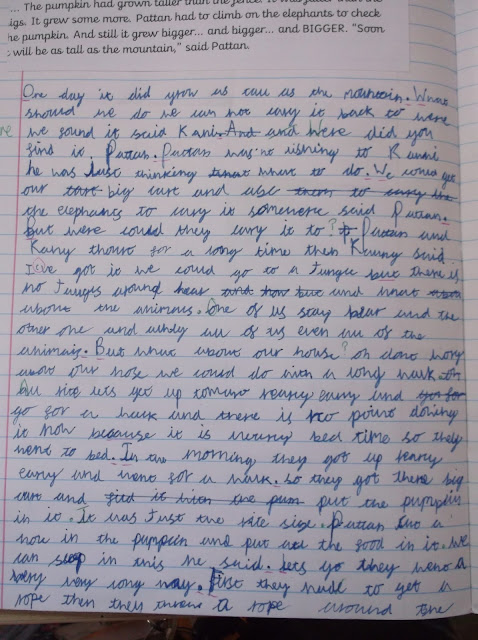 ... The pumpkin had grown taller than the fence. It was taller than the
igs. It grew some more. Pattan had to climb on the elephants to check
he pumpkin. And still it grew bigger... and bigger... and BIGGER. "Soon
will be as tall as the mountain," said Pattan.
One day it did grow as tall as the mountain. What
should we do we can not cary it back to were
we found it said Kani. And and Were did you
find it Pattan. Pattan was'nt lisning to Kanni
he was Just thinking what to do. We could get
our big cart and use
the elephants to cary it somewere said Pattan.
But were could they cary it to? Pattan and
Kany thourt for a long time then Kanny said
I've got it we could go to a Jungle but there is
no Jungls around hear and what
about the animals. One of us stay hear and the
other one and actuly all of us even all of the
animals. But what about our house? oh dont wory
about our hose we could do with a long walk
All rite lets get up tomaro rearey earey and
go for a walk and there is no point dowing
it now because it is nearey bed time so they
went to bed. In the morning they got up rearey
earey and went for a walk. so they got there big
cart and put the pumpkin
in it. It was Just the rite size. Pattan cut a
hole in the pumpcin and put all the food in it. We
can sleep in this he said. lets go they went a
very long way. First they had to get a
rope then they threw a rope around the